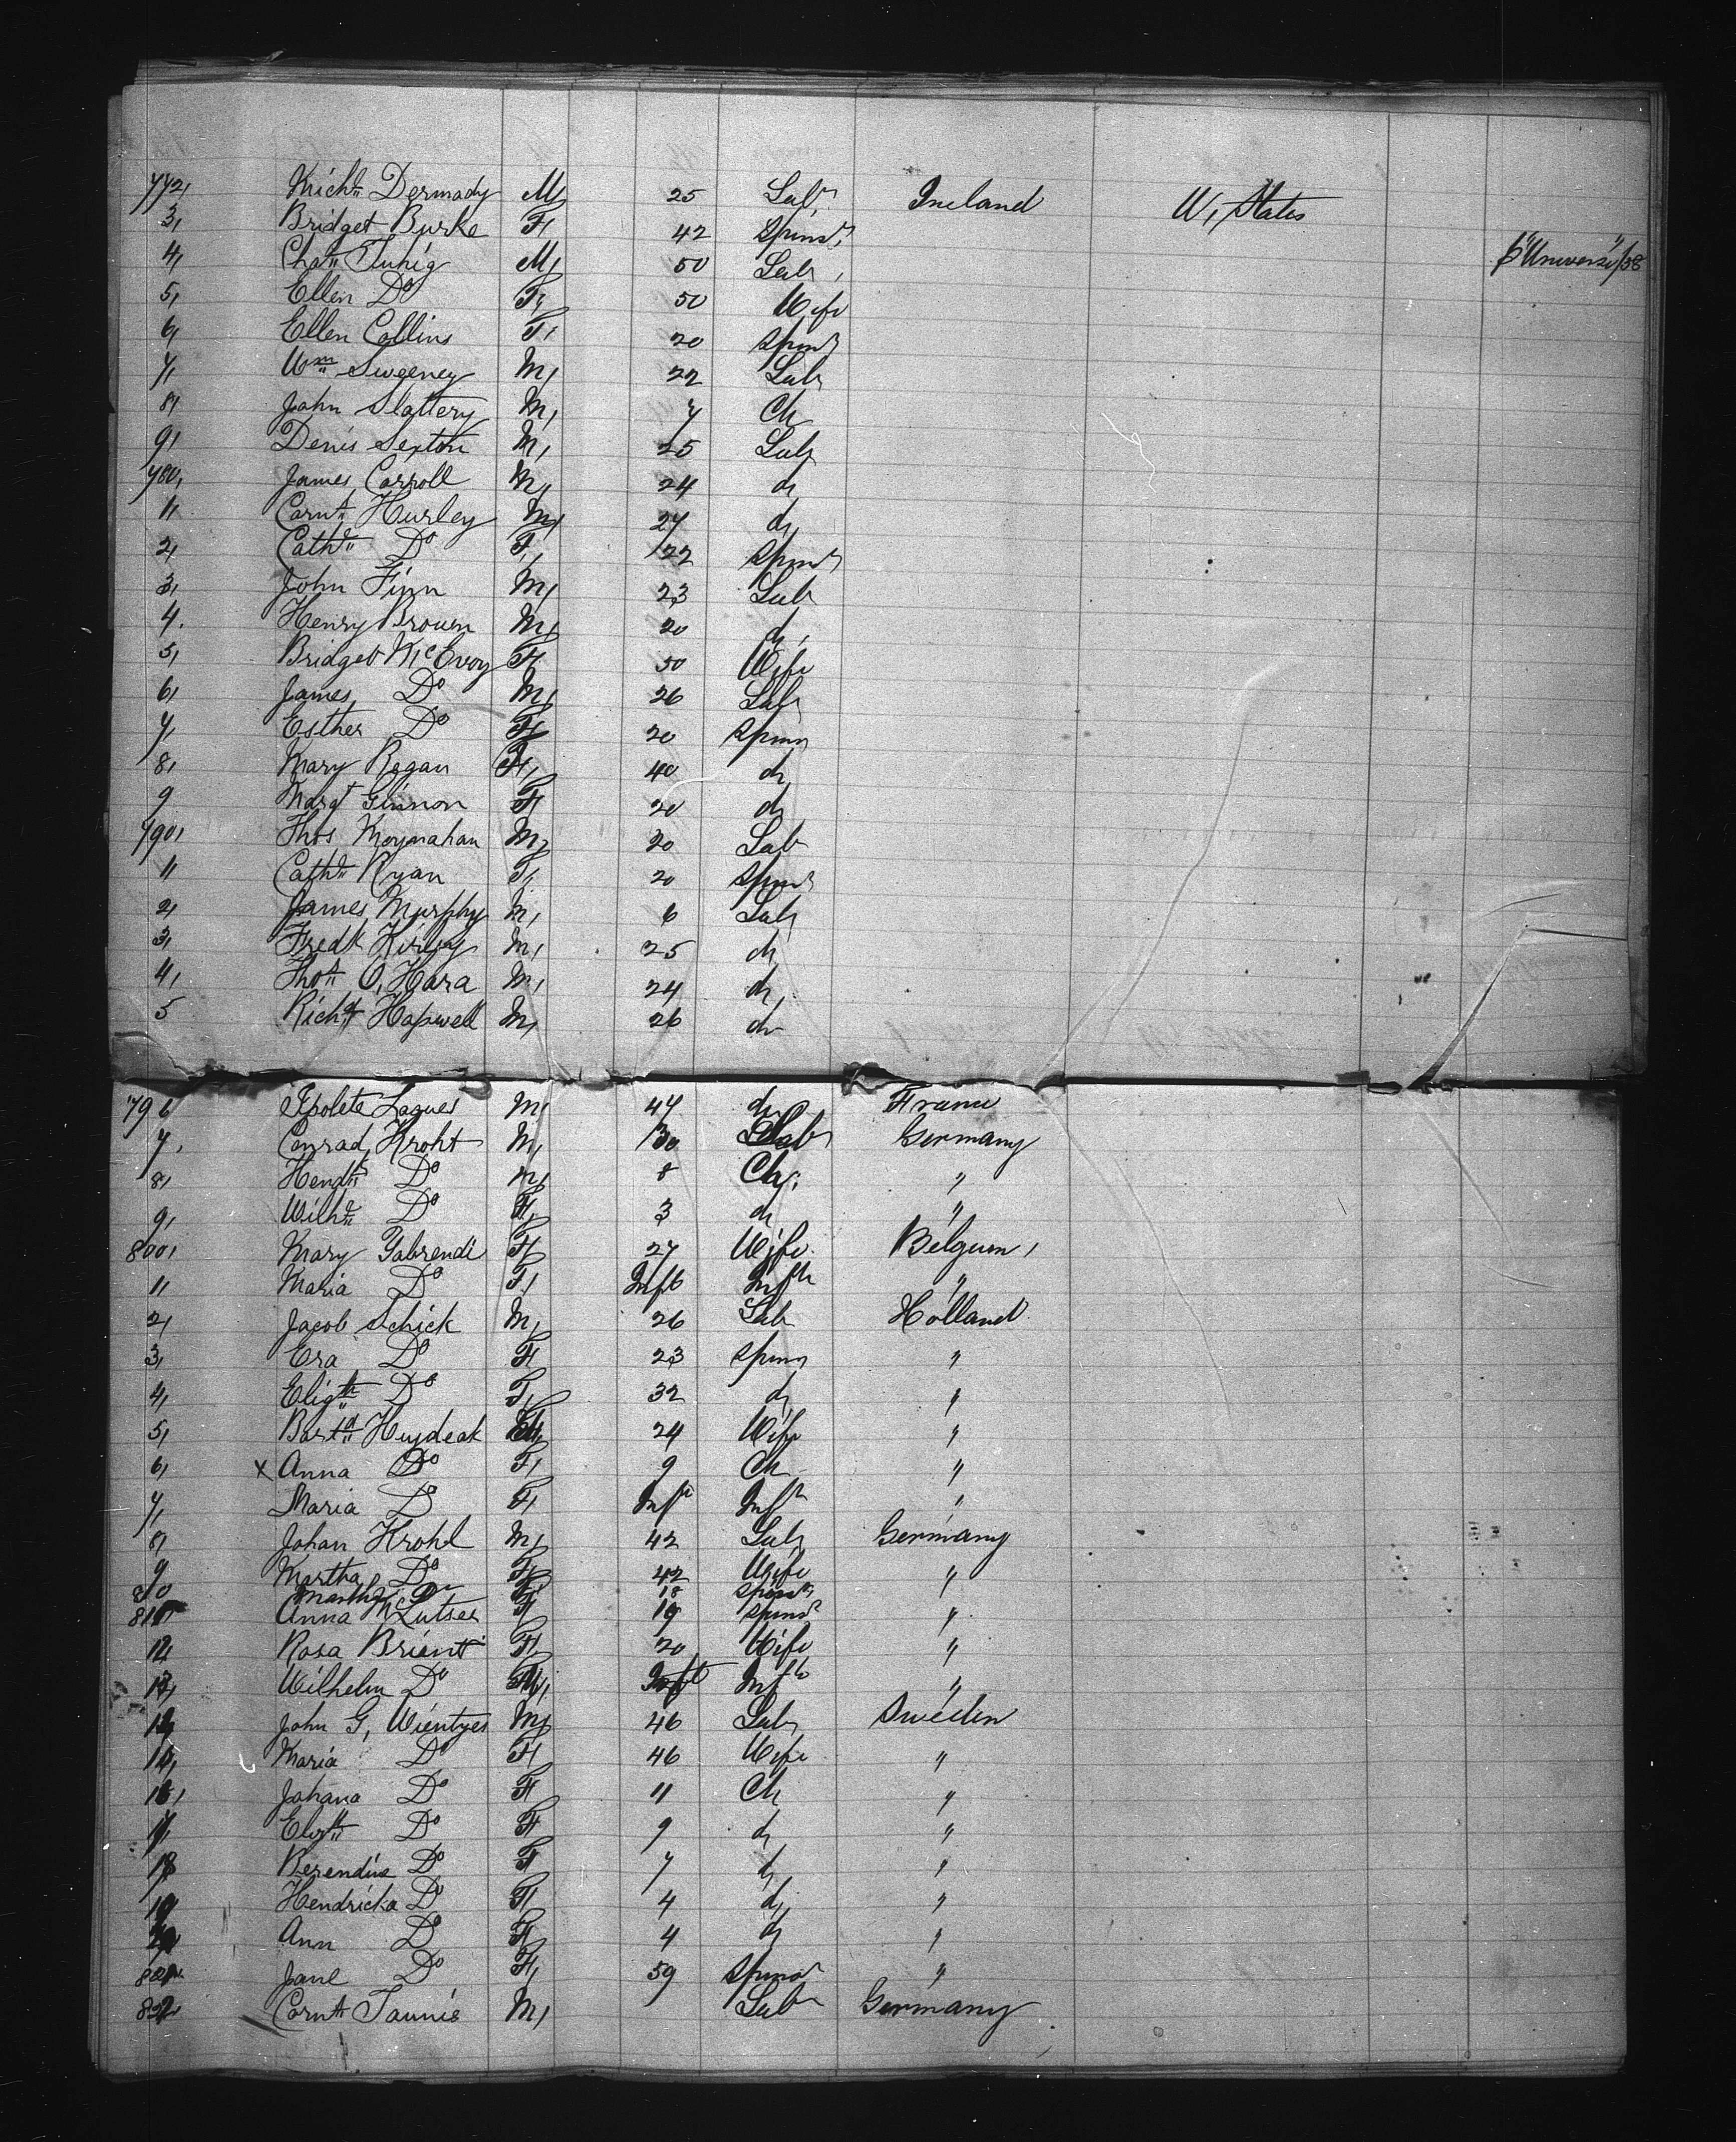 772, Mich^l Dermady M, 25 Lab^r Ireland U, States
3, Bridget Burke F, 42 Spins^r
4, Cha^s Tuhig M, 50 Lab, p "Universe"/58
5, Ellen D^o F, 50 Wife
6, Ellen Collins F, 20 Spins^r
7, W^m Sweeney M, 22 Lab
8, John Slattery M, 7 Ch
9, Denis Sexton M, 25 Lab
780, James Carroll M, 24 d,
1, Corn^s Hurley M, 27 d,
2, Cath^e D^o F, 22 Spins^r
3, John Finn M, 23 Lab
4. Henry Brown M, 20 d,
5, Bridget M^cEvoy F, 50 Wife
6, James D^o M, 26 Lab
7, Esther D^o F, 20 Spins
8, Mary Regan F, 40 d,
9 Marg^t Ginnon F, 20 d,
790, Thos Moynahan M, 20 Lab
1, Cath^e Ryan F, 20 Spins^r
2, James Murphy M, 6 Lab
3, Fredk M, 25 d,
4, Tho^s O,Hara M, 24 d,
5 Rich^d Hapwell M, 26 d,
796 M, 47 d, France
7. Conrad Kroht M, 30 Lab Germany
8, D^o M, 8 Ch, "
9, Wilh^e D^o F, 3 d, "
800, Mary Gabrendi F, 27 Wife Belgium,
1, Maria D^o F, Inft Inft "
2, Jacob Schick M, 26 Lab Holland
3, Eva D^o F, 23 Spins "
4, D^o F, 32 d, "
5, F, 24 Wife "
6, x Anna D^o F, 9 Ch "
7, Maria D^o F, Inft Inft "
8, Johan Krohl M, 42 Lab Germany
9 Martha D^o F, 42 Wife "
810 Martha D^o F, 18 Spins^r
811 Anna F, 19 Spins^r "
12, Rosa F, 20 Wife "
13, Wilhelm D^o M, Inft Inft "
John G, Wientyes M, 46 Lab Sweden
Maria D^o F, 46 Wife "
16, Johana D^o F, 11 Ch "
17, D^o F, 9 d, "
18 Berendine D^o F, 7 d, "
19 Hendricka D^o F, 4 d, "
20 Ann D^o F, 4 d, "
821 Jane D^o F, 59 Spins^r "
822 Corn^s Taunis M, Lab Germany